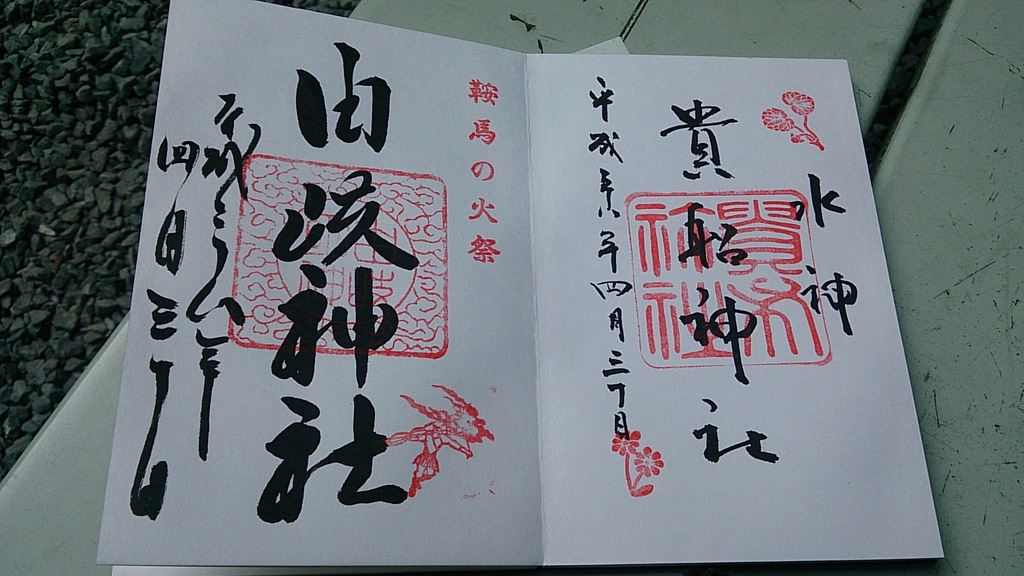 水神
貴船神社
平成二十八年四月三十日
鞍馬の火祭
由岐神社
平成二十八年
四月三十日